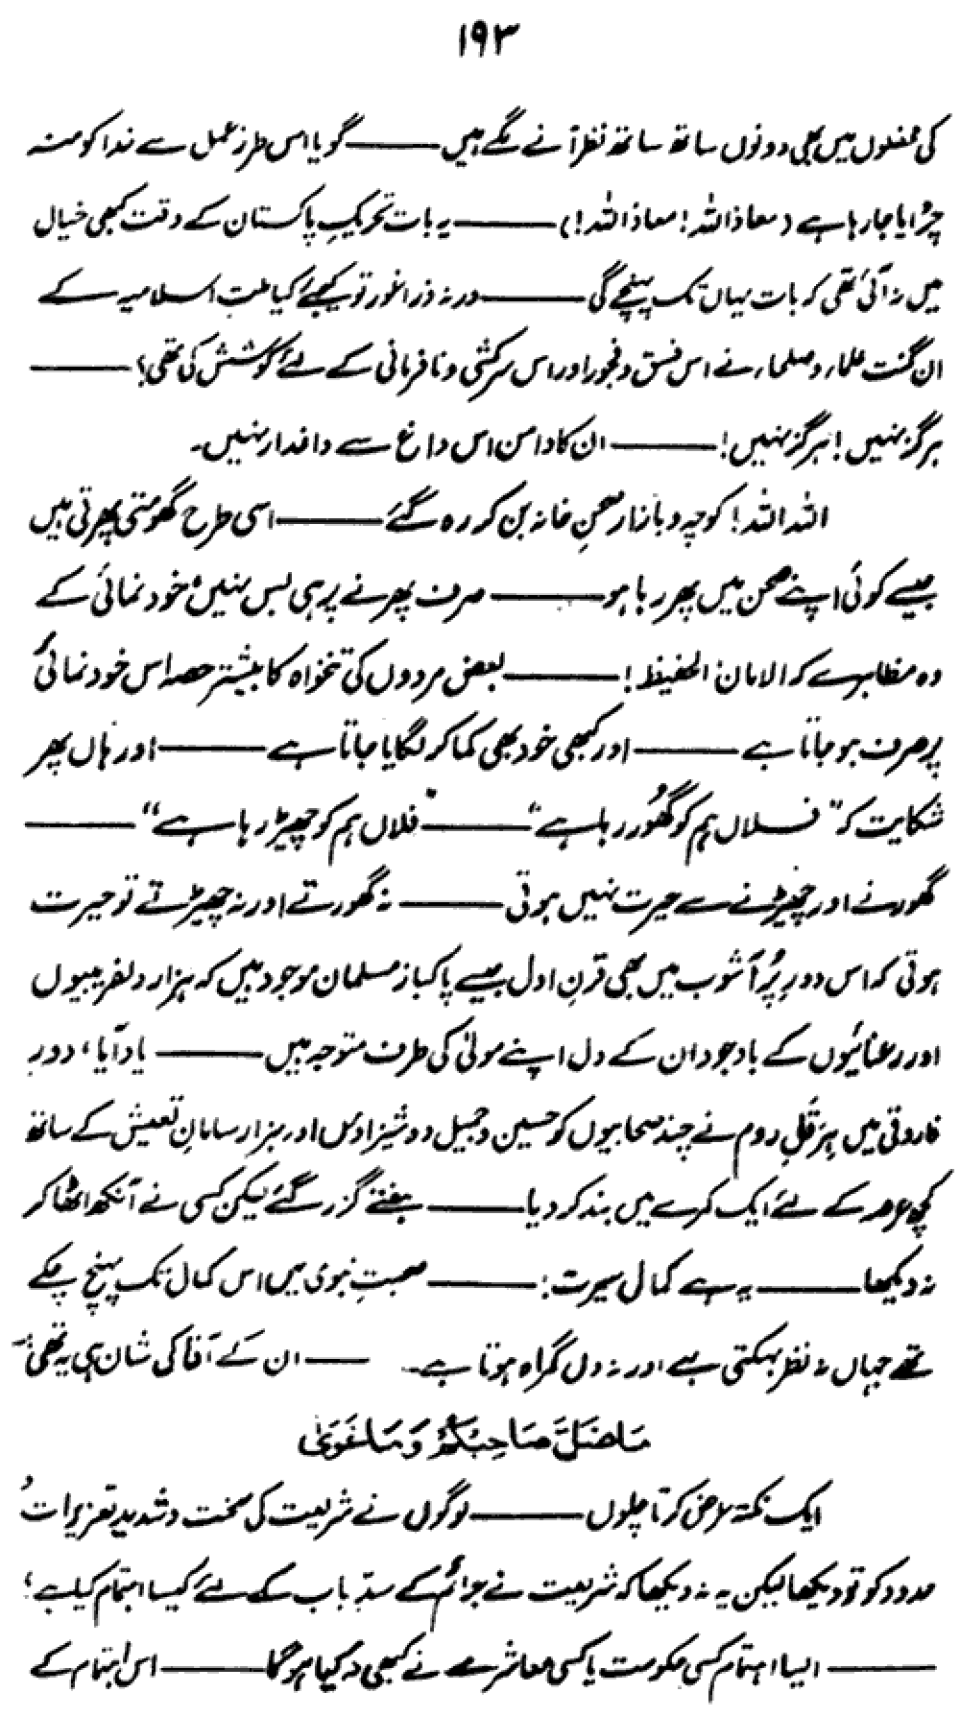 ۱۹۳
کی محفلوں میں بھی دونوں ساتھ ساتھ نظر آنے لگے ہیں ——— گویا اس طرز عمل سے خدا کو منہ
چڑایا جا رہا ہے (معاذ اللہ! معاذ اللہ!) ——— یہ بات تحریکِ پاکستان کے وقت کبھی خیال
میں نہ آئی تھی کہ بات یہاں تک پہنچے گی ——— ورنہ ذرا غور تو کیجئے کیا ملتِ اسلامیہ کے
ان گنت علماء و صلحاء نے اس فسق و فجور اور اس سرکشی و نافرمانی کے لئے کوشش کی تھی؟ ———
ہرگز نہیں! ہرگز نہیں! ——— ان کا دامن اس داغ سے داغدار نہیں۔
اللہ اللہ! کوچہ و بازار صحنِ خانہ بن کر رہ گئے ——— اسی طرح گھومتی پھرتی ہیں
جیسے کوئی اپنے صحن میں پھر رہا ہو ——— صرف پھرنے پر ہی بس نہیں، خود نمائی کے
وہ مظاہرے کہ الامان الحفیظ! ——— بعض مردوں کی تنخواہ کا بیشتر حصہ اس خود نمائی
پر صرف ہو جاتا ہے ——— اور کبھی خود بھی کما کر لگایا جاتا ہے ——— اور ہاں پھر
شکایت کہ "فلاں ہم کو گھُور رہا ہے" ——— "فلاں ہم کو چھیڑ رہا ہے" ———
گھورنے اور چھیڑنے سے حیرت نہیں ہوتی ——— نہ گھورتے اور نہ چھیڑتے تو حیرت
ہوتی کہ اس دورِ پُر آشوب میں بھی قرنِ اول جیسے پاکباز مسلمان موجود ہیں کہ ہزار دلفریبیوں
اور رعنائیوں کے باوجود ان کے دل اپنے مولیٰ کی طرف متوجہ ہیں ——— یاد آیا، دورِ
فاروقی میں ہِرَقلِ روم نے چند صحابیوں کو حسین و جمیل دوشیزاؤں اور ہزار سامانِ تعیش کے ساتھ
کچھ عرصہ کے لئے ایک کمرے میں بند کر دیا ——— ہفتے گزر گئے لیکن کسی نے آنکھ اٹھا کر
نہ دیکھا ——— یہ ہے کمالِ سیرت! ——— صحبتِ نبوی میں اس کمال تک پہنچ چکے
تھے جہاں نہ نظر بہکتی ہے اور نہ دل گمراہ ہوتا ہے۔ ——— ان کے آقا کی شان ہی یہ تھی
مَا ضَلَّ صَاحِبُكُمْ وَمَا غَوَىٰ
ایک نکتہ عرض کرتا چلوں ——— لوگوں نے شریعت کی سخت و شدید تعزیرات و
حدود کو تو دیکھا لیکن یہ نہ دیکھا کہ شریعت نے جرائم کے سدِّ باب کے لئے کیسا اہتمام کیا ہے؛
——— ایسا اہتمام کسی حکومت یا کسی معاشرے نے کبھی نہ کیا ہوگا ——— اس اہتمام کے